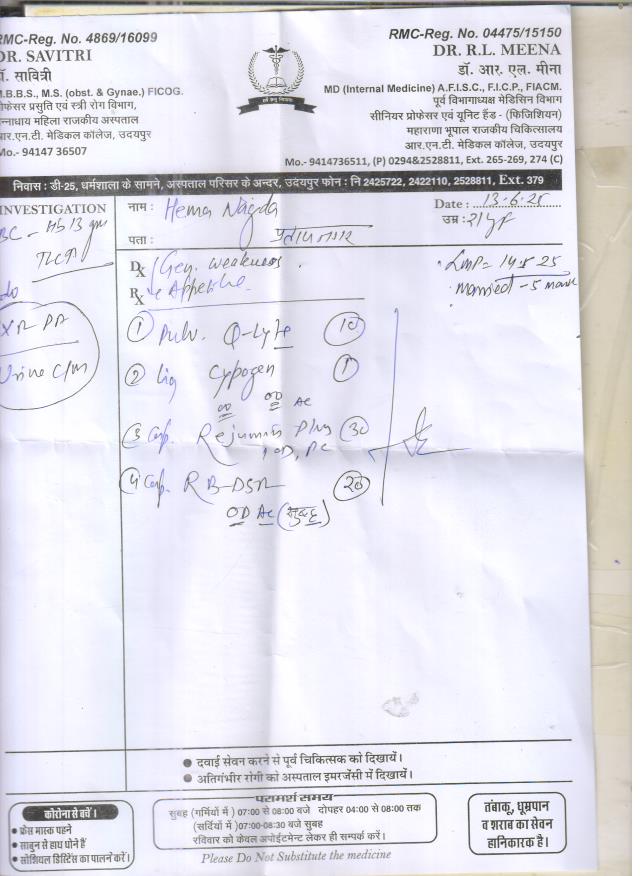 RMC-Reg. No. 4869/16099
DR. SAVITRI
डॉ. सावित्री
M.B.B.S., M.S. (obst. & Gynae.) FICOG.
प्रोफेसर प्रसुति एवं स्त्री रोग विभाग,
पन्नाधाय महिला राजकीय अस्पताल
आर.एन.टी. मेडिकल कॉलेज, उदयपुर
Mo.- 94147 36507
RMC-Reg. No. 04475/15150
DR. R.L. MEENA
डॉ. आर. एल. मीना
MD (Internal Medicine) A.F.I.S.C., F.I.C.P., FIACM.
पूर्व विभागाध्यक्ष मेडिसिन विभाग
सीनियर प्रोफेसर एवं यूनिट हैंड - (फिजिशियन)
महाराणा भूपाल राजकीय चिकित्सालय
आर.एन.टी. मेडिकल कॉलेज, उदयपुर
Mo.- 9414736511, (P) 0294&2528811, Ext. 265-269, 274 (C)
निवास : डी-25, धर्मशाला के सामने, अस्पताल परिसर के अन्दर, उदयपुर फोन : नि 2425722, 2422110, 2528811, Ext. 379
INVESTIGATION
नाम : Hema Nagda
Date : 13.6.25
उम्र : 21
पता : प्रताप नगर
BC - Hb 13 gm
Dx Gen. weakness
LMP = 14.5.25
married - 5
Rx Appetite
PA
Urine C/M
① Pulv. Q-lyte ⑩
② Liq Cypogen ①
OD OD AC
③ Cap. Rejumin Plus ㉚
1 OD, PC
④ Cap. RB-DSR ⑳
OD AC (सुबह)
• दवाई सेवन करने से पूर्व चिकित्सक को दिखायें।
• अतिगंभीर रोगी को अस्पताल इमरजेंसी में दिखायें।
कोरोना से बचें।
• फ्रेस मास्क पहने
• साबुन से हाथ धोने हैं
• सोशियल डिस्टिेंस का पालने करें।
परामर्श समय
सुबह (गर्मियों में ) 07:00 से 08:00 बजे दोपहर 04:00 से 08:00 तक
(सर्दियों में )07:00-08:30 बजे सुबह
रविवार को केवल अपोईटमेन्ट लेकर ही सम्पर्क करें।
Please Do Not Substitute the medicine
तंबाकू, धूम्रपान
व शराब का सेवन
हानिकारक है।